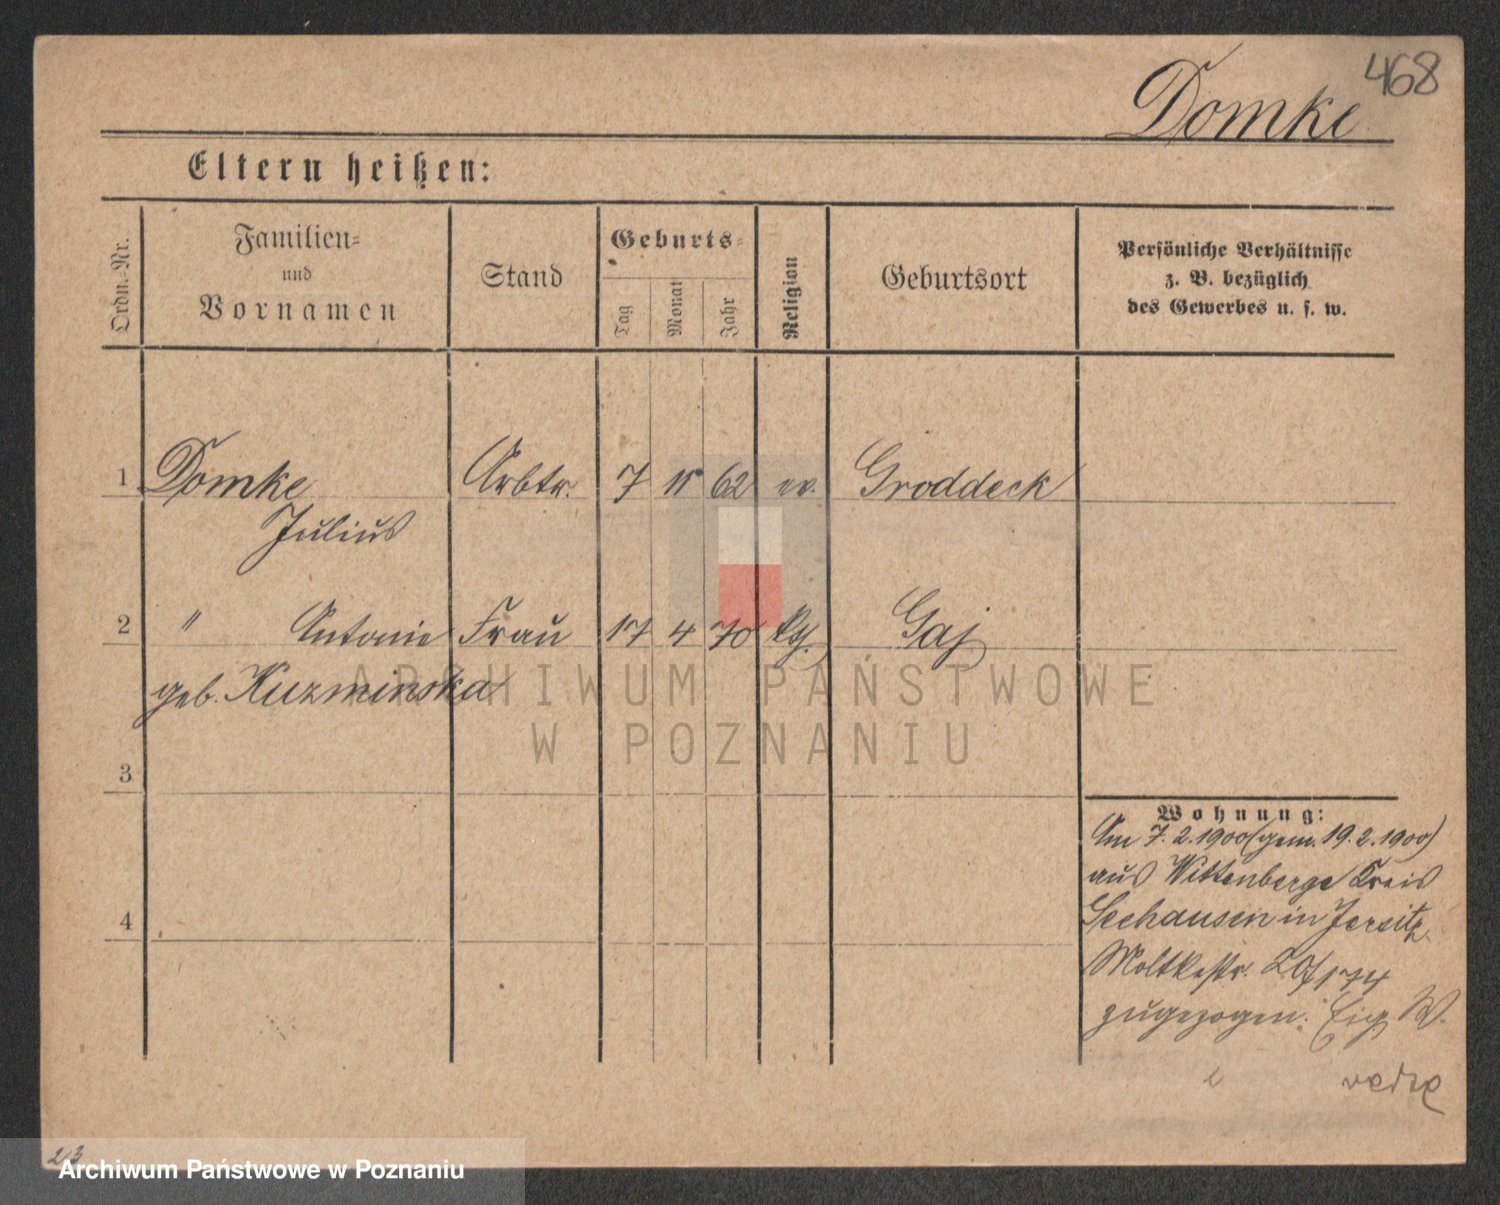 468
Domke
Eltern heißen:
Ordn.-Nr.
Familien-
und
Vornamen
Stand
Geburts-
Tag
Monat
Jahr
Religion
Geburtsort
Persönliche Verhältnisse
z. B. bezüglich
des Gewerbes u. s. w.
1 Domke Arbtr. 7 11 62 ev. Groddeck
Julius
2 " Antonie Frau 17 4 70 kth. Gaj
geb. Kuzminska
ARCHIWUM PAŃSTWOWE
W POZNANIU
3
4
Wohnung:
Am 7.2.1900 (gem. 19.2.1900)
aus Wittenberge Kreis
Seehausen in Jersitz
Moltkestr.
zugezogen. Eig. W.
23
Archiwum Państwowe w Poznaniu